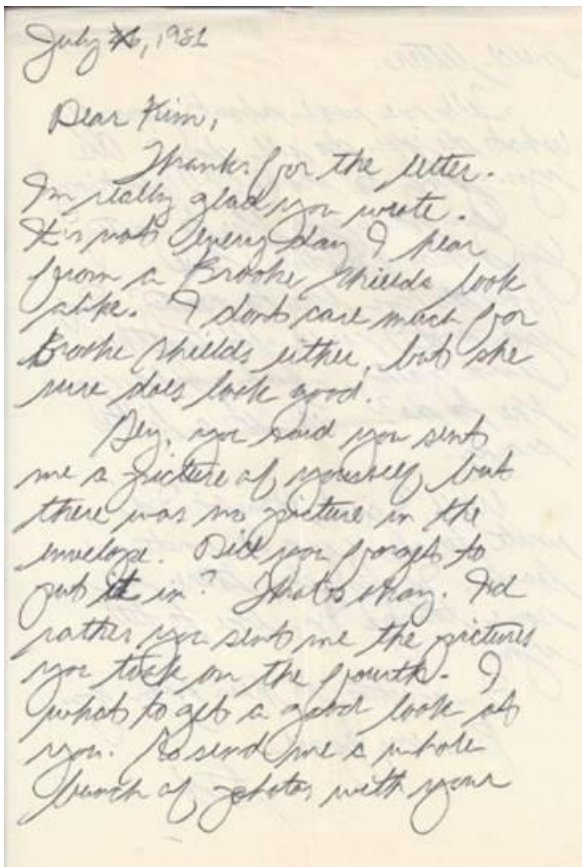 July 26, 1981
Dear Kim,
Thanks for the letter.
I'm really glad you wrote.
It's not every day I hear
from a Brooke Shields look
alike. I dont care much for
Brooke Shields either, but she
sure does look good.
Hey, you said you sent
me a picture of yourself but
there was no picture in the
envelope. Did you forget to
put it in? That's okay. I'd
rather you sent me the pictures
you took on the fourth. I
what to get a good look at
you. So send me a whole
bunch of photos with your